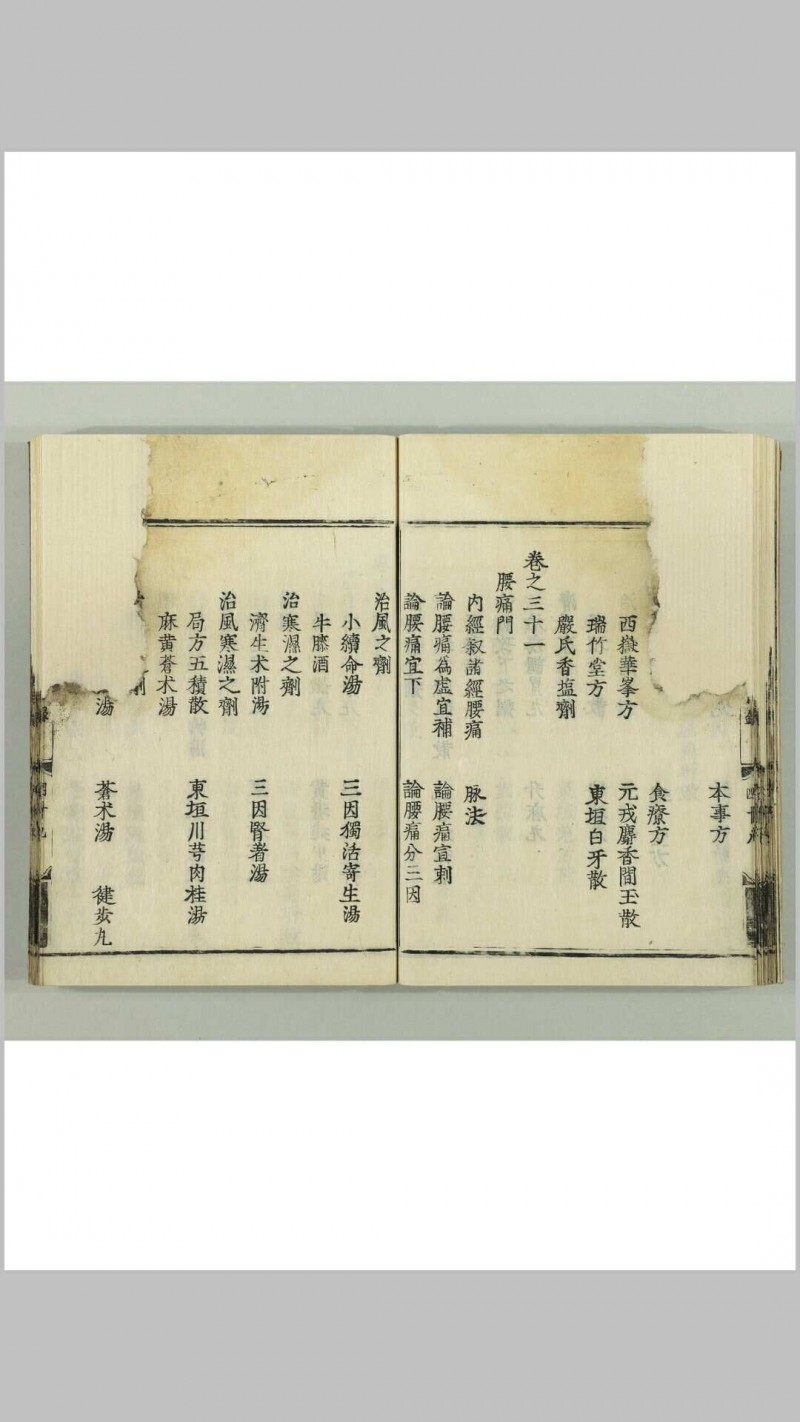 本事方
食療方
西嶽華峯方 元戎麝香間玉散
瑞竹堂方 東垣白牙散
嚴氏香塩劑
卷之三十一
腰痛門
內經叙諸經腰痛 脉法
論腰痛為虛宜補 論腰痛宜刺
論腰痛宜下 論腰痛分三因
治風之劑
小續命湯 三因獨活寄生湯
牛膝酒
治寒濕之劑
濟生术附湯 三因腎着湯
治風寒濕之劑
局方五積散 東垣川芎肉桂湯
麻黄蒼术湯
劑
湯 蒼术湯 健歩丸